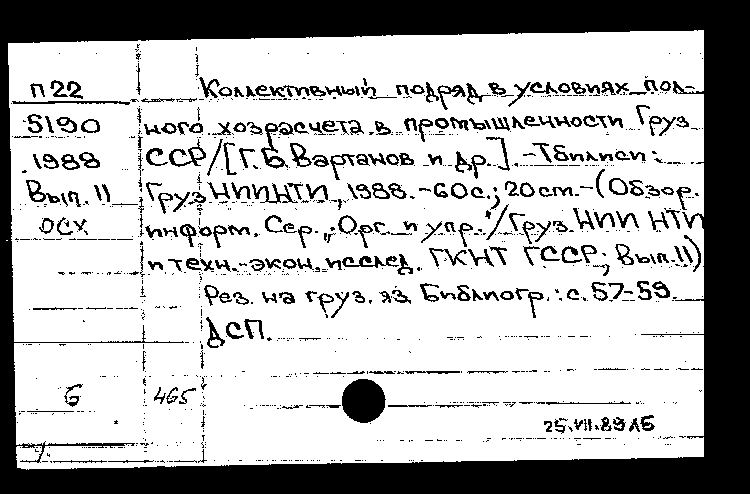 П22 Коллективный подряд в условиях пол-
5190 ного хозрасчета в промышленности Груз
1988 ССР/[Г.Б.Вартанов и др.].-Тбилиси:
Вып.11 ГрузНИИНТИ, 1988.-60с.; 20cm.-(Обзор.
ОСХ информ. Сер. „Орг. и упр."/Груз НИИ НТИ
и техн.-экон. исслед. ГКНТ ГССР; Вып.11)
Рез. на груз. яз. Библиогр.: с. 57-59.
ДСП.
G 465
25.VII.89